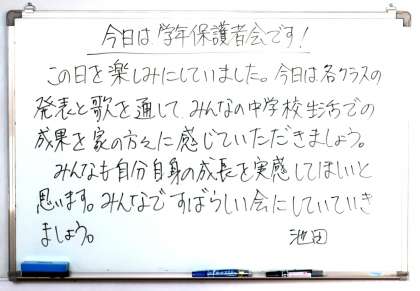 今日は学年保護者会です!
この日を楽しみにしていました。今日は各クラスの
発表と歌を通して、みんなの中学校生活での
成果を家の方々に感じていただきましょう。
みんなも自分自身の成長を実感してほしいと
思います。みんなですばらしい会にしていていき
ましょう。
池田